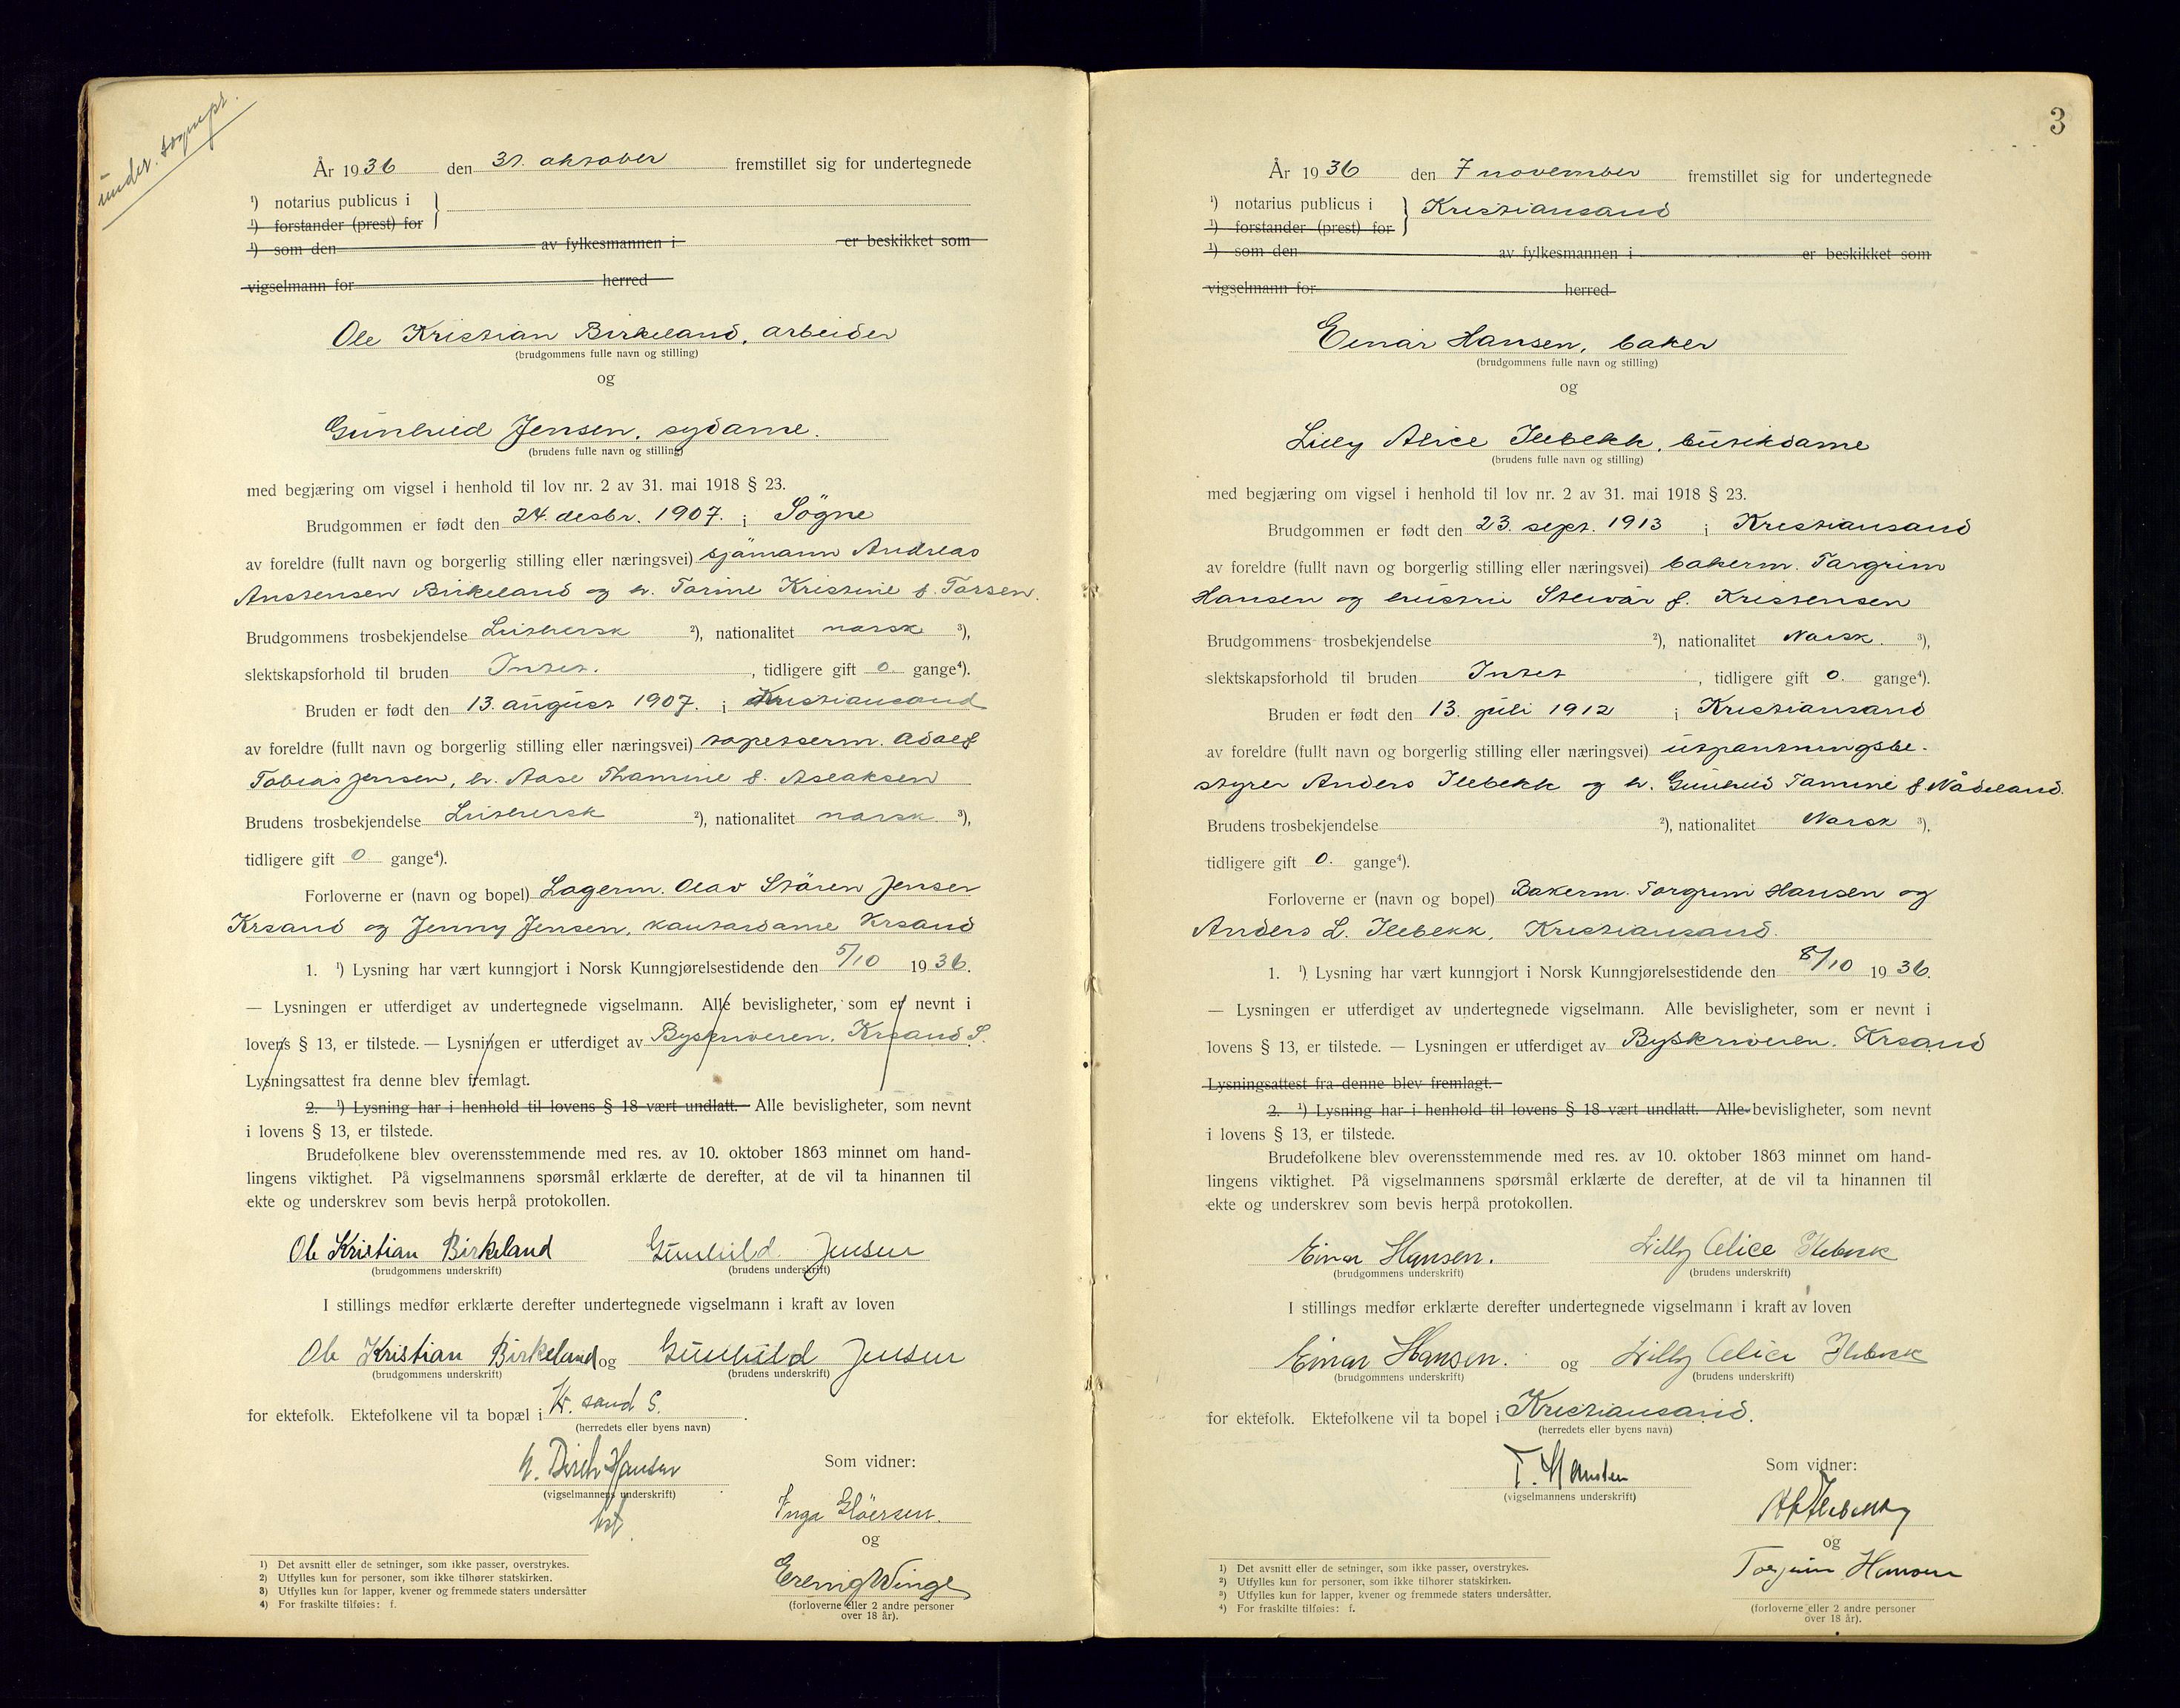 under. sognepr.
År 1936 den 31. oktober fremstillet sig for undertegnede
¹) notarius publicus i
¹) forstander (prest) for
¹) som den av fylkesmannen i er beskikket som
vigselmann for herred
Ole Kristian Birkeland, arbeider
(brudgommens fulle navn og stilling)
og
Gunhild Jensen, sydame.
(brudens fulle navn og stilling)
med begjæring om vigsel i henhold til lov nr. 2 av 31. mai 1918 § 23.
Brudgommen er født den 24. desbr. 1907. i Sögne
av foreldre (fullt navn og borgerlig stilling eller næringsvei) sjömann Andreas
Anstensen Birkeland og h. Torine Kristine f. Torsen.
Brudgommens trosbekjendelse Luthersk ²), nationalitet norsk ³),
slektskapsforhold til bruden Intet. , tidligere gift 0 gange⁴).
Bruden er født den 13. august 1907. i Kristiansand
av foreldre (fullt navn og borgerlig stilling eller næringsvei) tapetserm. Adolf
Tobias Jensen, h. Aase Thomine f. Aslaksen
Brudens trosbekjendelse Luthersk ²), nationalitet norsk ³),
tidligere gift 0 gange⁴).
Forloverne er (navn og bopel) Lagerm. Olav Stören Jensen
Krsand og Jenny Jensen, kontordame Krsand
1. ¹) Lysning har vært kunngjort i Norsk Kunngjørelsestidende den 5/10 1936.
— Lysningen er utferdiget av undertegnede vigselmann. Alle bevisligheter, som er nevnt i
lovens § 13, er tilstede. — Lysningen er utferdiget av Byskriveren. Krsand S.
Lysningsattest fra denne blev fremlagt.
2. ¹) Lysning har i henhold til lovens § 18 vært undlatt. Alle bevisligheter, som nevnt
i lovens § 13, er tilstede.
Brudefolkene blev overensstemmende med res. av 10. oktober 1863 minnet om hand-
lingens viktighet. På vigselmannens spørsmål erklærte de derefter, at de vil ta hinannen til
ekte og underskrev som bevis herpå protokollen.
Ole Kristian Birkeland Gunhild Jensen
(brudgommens underskrift) (brudens underskrift)
I stillings medfør erklærte derefter undertegnede vigselmann i kraft av loven
Ole Kristian Birkeland og Gunhild Jensen
(brudgommens underskrift) (brudens underskrift)
for ektefolk. Ektefolkene vil ta bopæl i Kr. sand S.
(herredets eller byens navn)
Birch Hansen
(vigselmannens underskrift)
Som vidner:
Inga Glöersen.
og
Erling Winge
(forloverne eller 2 andre personer
over 18 år).
1) Det avsnitt eller de setninger, som ikke passer, overstrykes.
2) Utfylles kun for personer, som ikke tilhører statskirken.
3) Utfylles kun for lapper, kvener og fremmede staters undersåtter
4) For fraskilte tilføies: f.
3
År 1936 den 7 november fremstillet sig for undertegnede
¹) notarius publicus i Kristiansand
¹) forstander (prest) for
¹) som den av fylkesmannen i er beskikket som
vigselmann for herred
Einar Hansen, baker
(brudgommens fulle navn og stilling)
og
Lilly Alice Ilebekk, butikdame
(brudens fulle navn og stilling)
med begjæring om vigsel i henhold til lov nr. 2 av 31. mai 1918 § 23.
Brudgommen er født den 23. sept. 1913 i Kristiansand
av foreldre (fullt navn og borgerlig stilling eller næringsvei) bakerm. Torgrim
Hansen og hustru Steivór f. Kristensen
Brudgommens trosbekjendelse ²), nationalitet Norsk. ³),
slektskapsforhold til bruden Intet , tidligere gift 0. gange⁴).
Bruden er født den 13. juli 1912 i Kristiansand
av foreldre (fullt navn og borgerlig stilling eller næringsvei) utpantningsbe-
styrer Anders Ilebekk og h. Gunhild Tomine f. Nådeland.
Brudens trosbekjendelse ²), nationalitet Norsk ³),
tidligere gift 0. gange⁴).
Forloverne er (navn og bopel) Bakerm. Torgrim Hansen og
Anders L. Ilebekk, Kristiansand.
1. ¹) Lysning har vært kunngjort i Norsk Kunngjørelsestidende den 8/10 1936.
— Lysningen er utferdiget av undertegnede vigselmann. Alle bevisligheter, som er nevnt i
lovens § 13, er tilstede. — Lysningen er utferdiget av Byskriveren. Krsand
Lysningsattest fra denne blev fremlagt.
2. ¹) Lysning har i henhold til lovens § 18 vært undlatt. Alle bevisligheter, som nevnt
i lovens § 13, er tilstede.
Brudefolkene blev overensstemmende med res. av 10. oktober 1863 minnet om hand-
lingens viktighet. På vigselmannens spørsmål erklærte de derefter, at de vil ta hinannen til
ekte og underskrev som bevis herpå protokollen.
Einar Hansen. Lilly Alice Ilebekk
(brudgommens underskrift) (brudens underskrift)
I stillings medfør erklærte derefter undertegnede vigselmann i kraft av loven
Einar Hansen. og Lilly Alice Ilebekk
(brudgommens underskrift) (brudens underskrift)
for ektefolk. Ektefolkene vil ta bopel i Kristiansand.
(herredets eller byens navn)
(vigselmannens underskrift)
Som vidner:
og
Torgrim Hansen
(forloverne eller 2 andre personer
over 18 år).
1) Det avsnitt eller de setninger, som ikke passer, overstrykes.
2) Utfylles kun for personer, som ikke tilhører statskirken.
3) Utfylles kun for lapper, kvener og fremmede staters undersåtter.
4) For fraskilte tilføies: f.